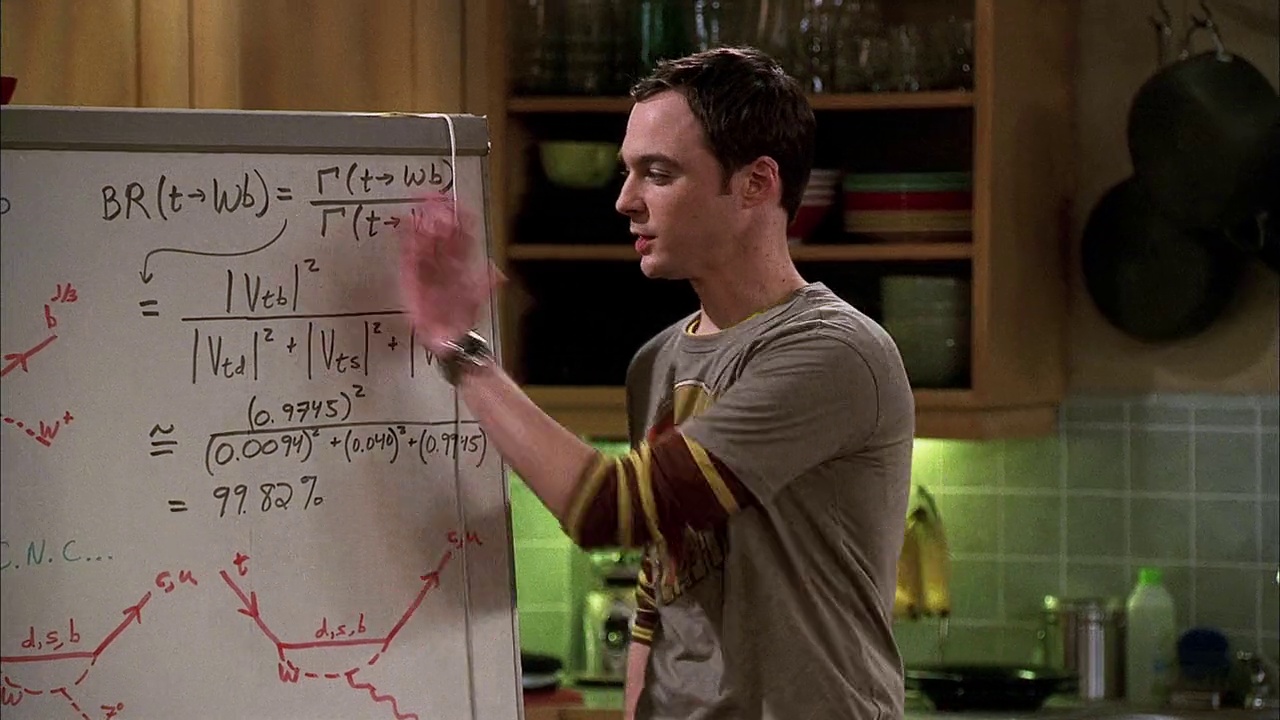 BR(t→Wb) = Γ(t→Wb)
Γ(t→
= |Vtb|²
|Vtd|² + |Vts|² + |V
≅ (0.9745)²
(0.0094)² + (0.040)² + (0.9945)
= 99.82%
b
W+
C.N.C...
t
d,s,b
d,s,b
W
W